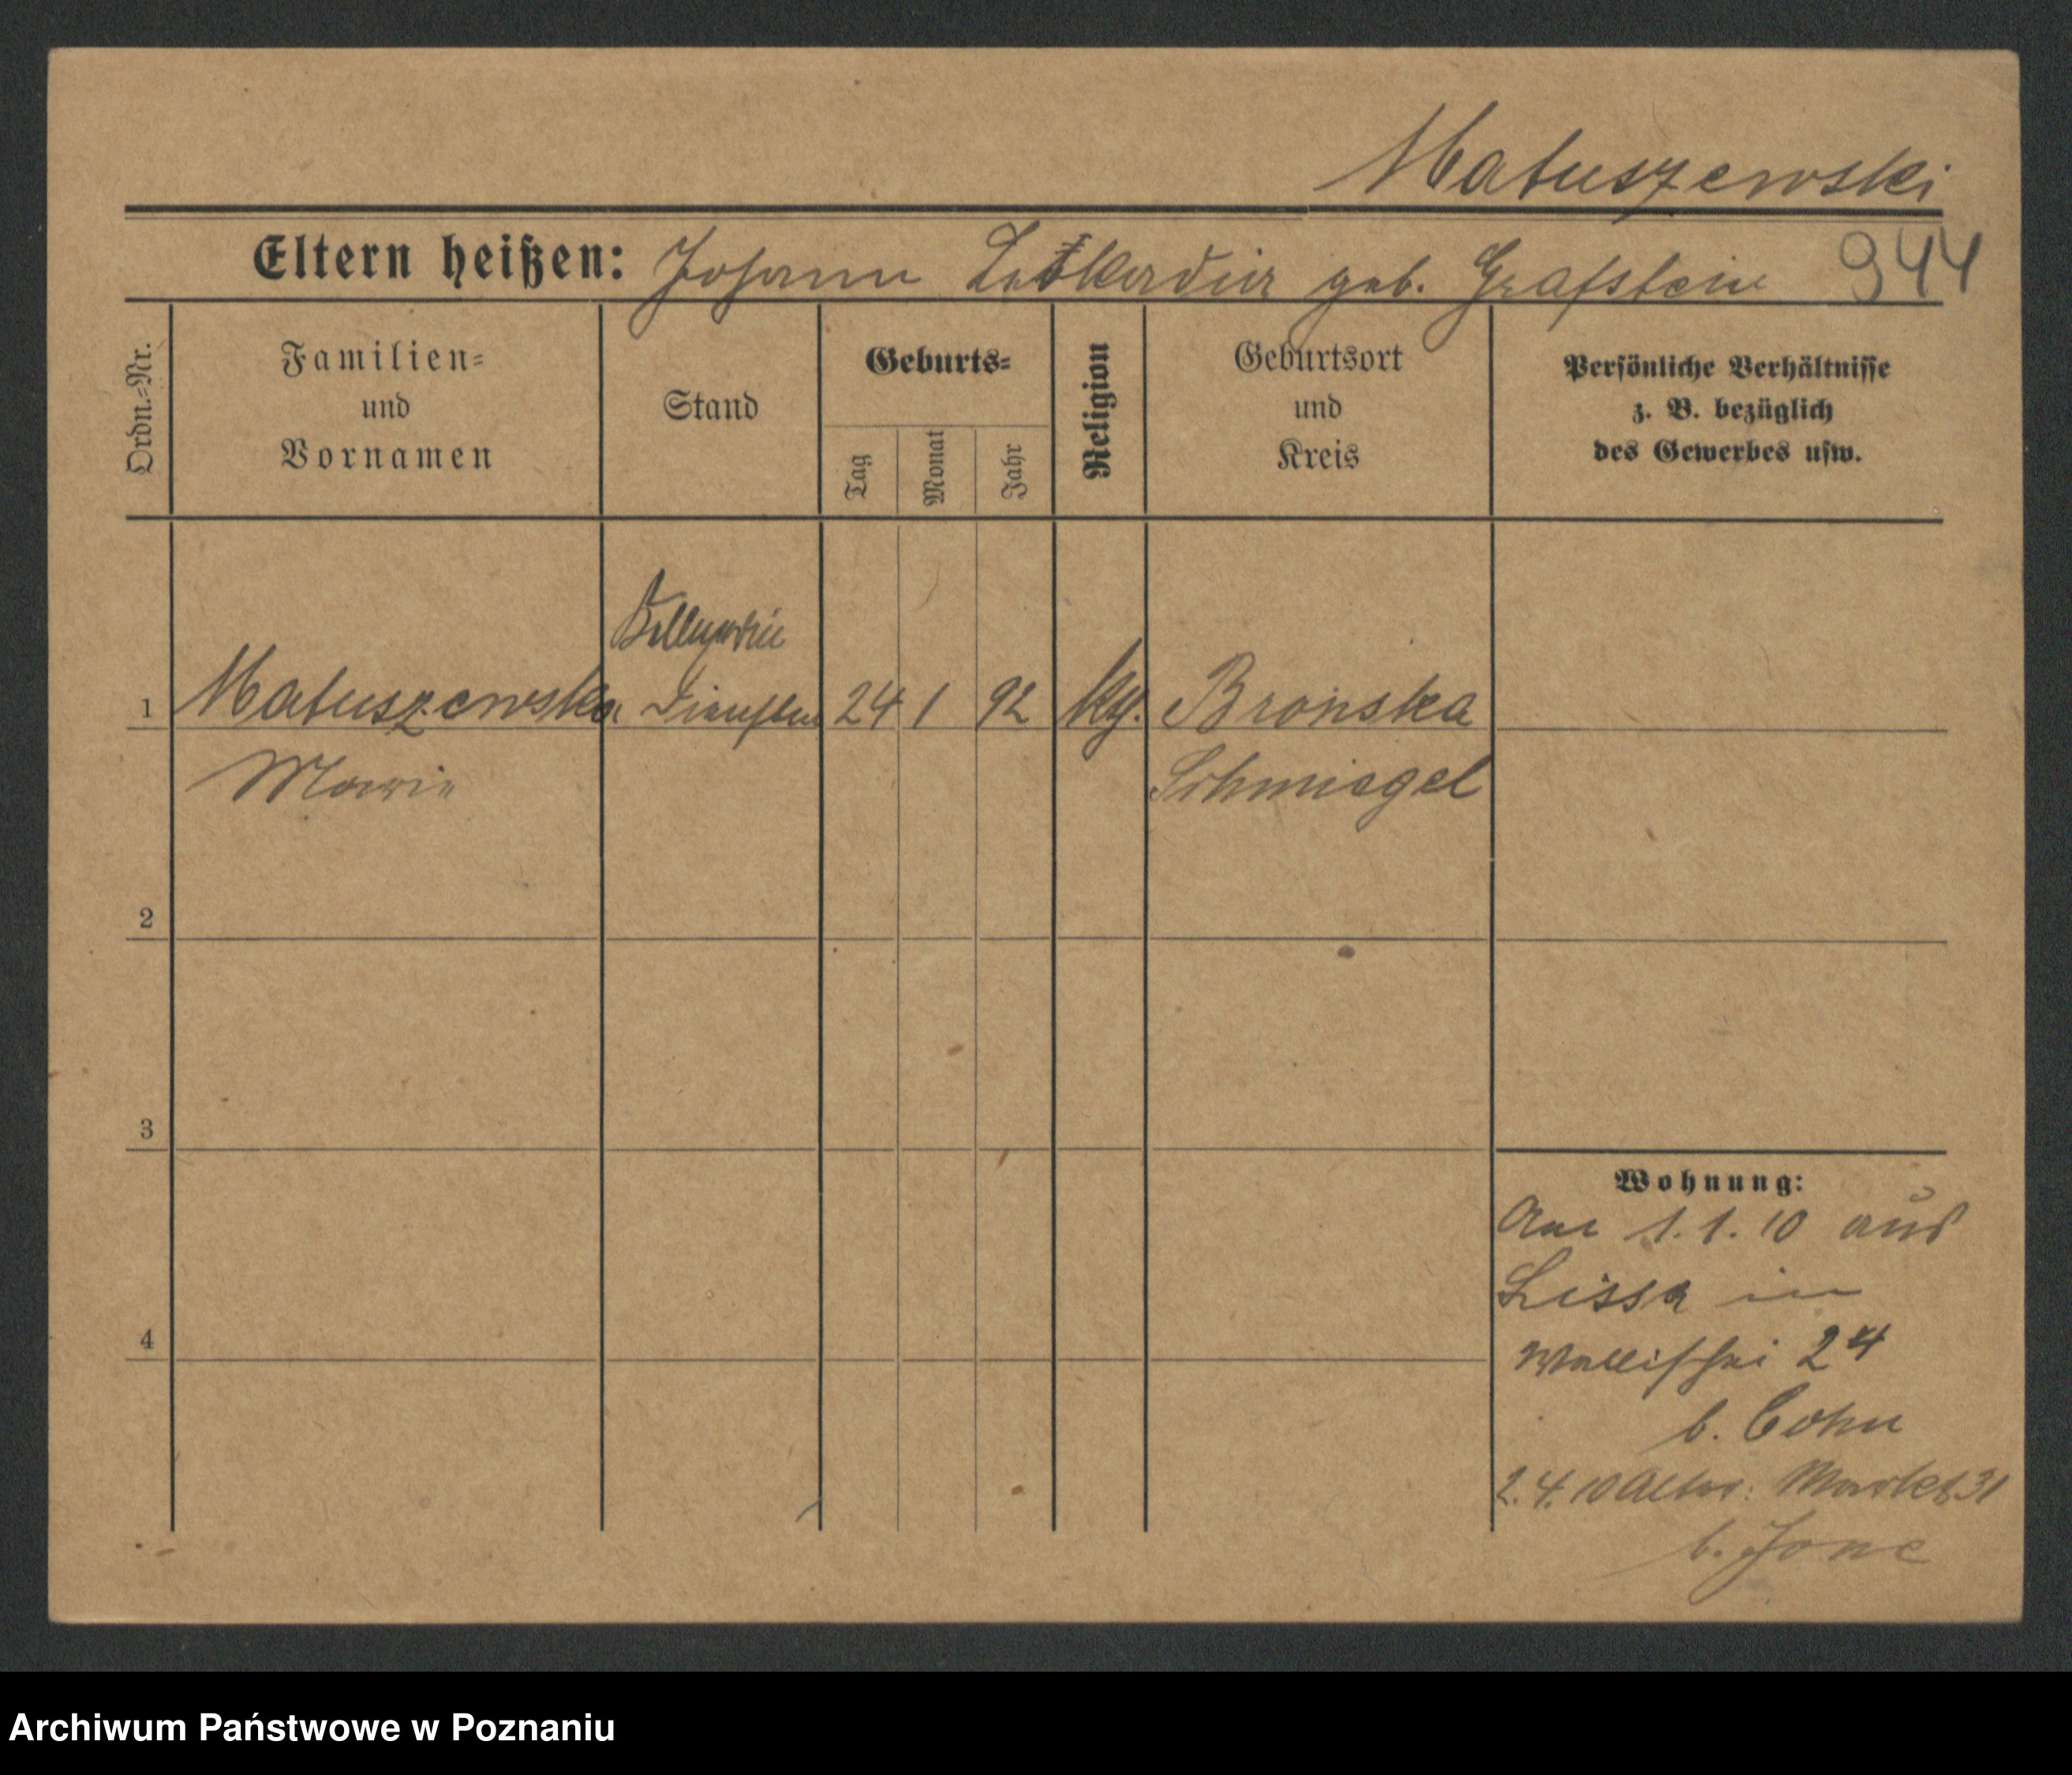 Matuszewski
Eltern heißen: Johann geb. Grafstein 944
Ordn.=Nr.
Familien=
und
Vornamen
Stand
Geburts=
Tag
Monat
Jahr
Religion
Geburtsort
und
Kreis
Persönliche Verhältnisse
z. B. bezüglich
des Gewerbes usw.
1 Matuszewska 24 1 92 Bronska
Marie Schmiegel
2
3
4
Wohnung:
1.1.10 aus
Lissa in
Wallischei 24
b. Cohn
2.4.10 Alter Markt 31
b.
Archiwum Państwowe w Poznaniu